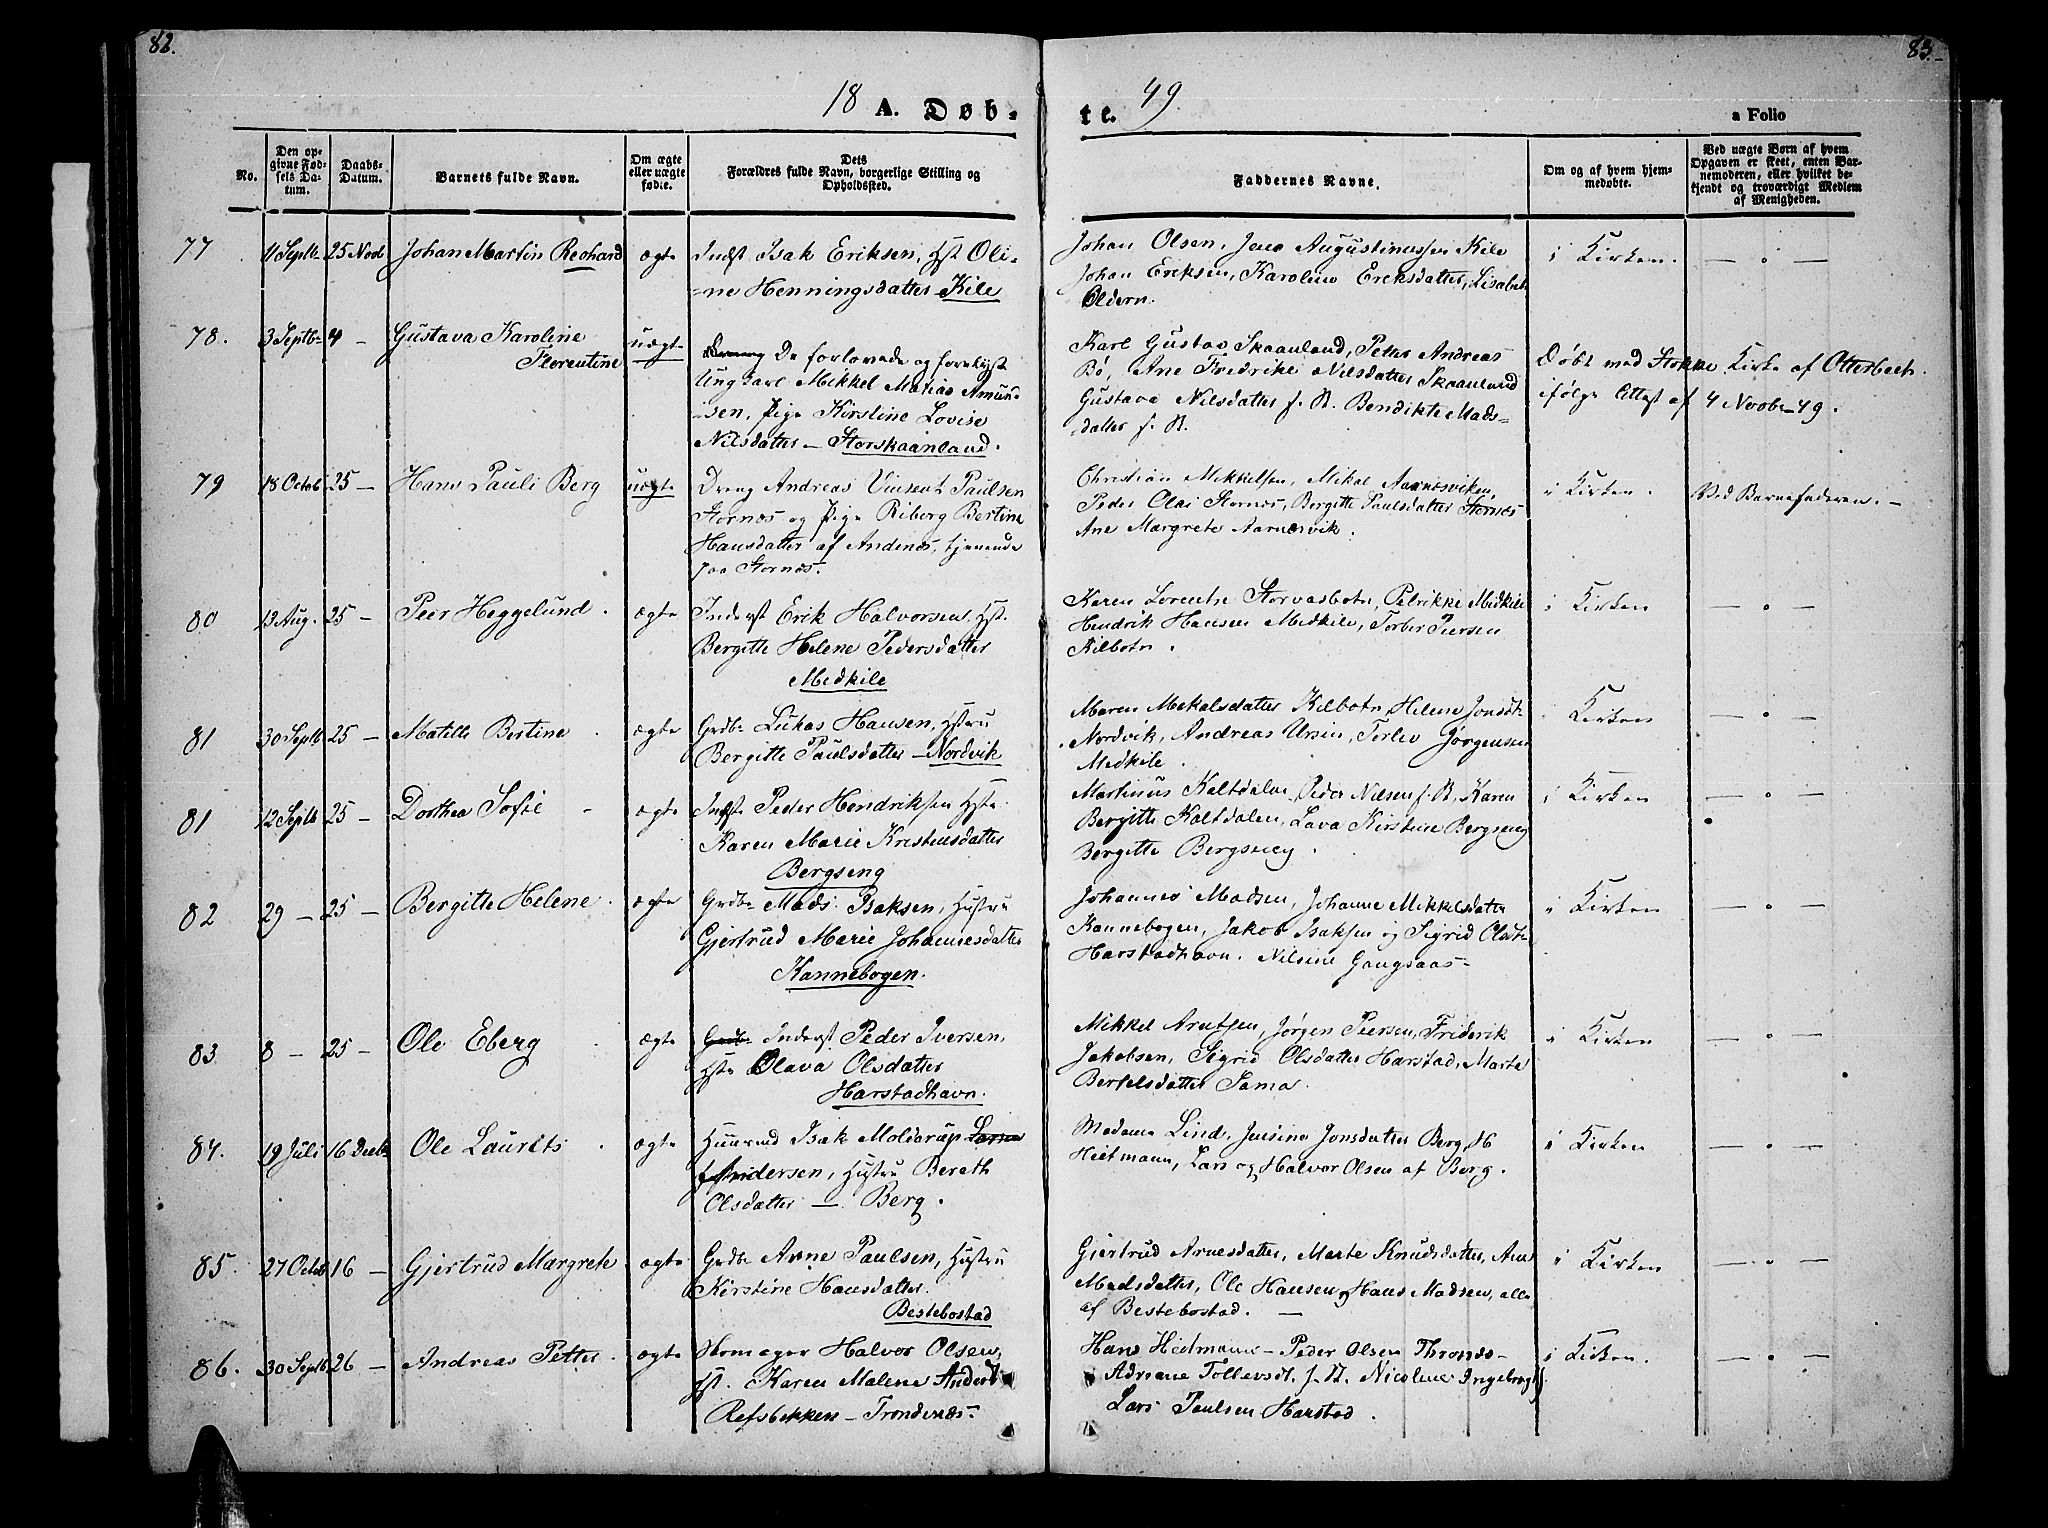 82.
83.
18 A. Døb-
te. 49.
a Folio
No.
Den op-
givne Fød-
sels Da-
tum.
Daabs-
Datum.
Barnets fulde Navn.
Om ægte
eller uægte
fødte.
Dets
Forældres fulde Navn, borgerlige Stilling og
Opholdssted.
Faddernes Navne.
Om og af hvem hjem-
medøbte.
Ved uægte Børn af hvem
Opgaven er skeet, enten Bar-
nemoderen, eller hvilket be-
kjendt og troværdigt Medlem
af Menigheden.
77 11 Septb- 25 Novb Johan Martin Reohard ægte
Indst Isak Eriksen, Hst Oli-
-ne Henningsdatter Kile
Johan Olsen, Jens Augustinussen Kile
Johan Eriksen, Karoline Eriksdatter, Lisabet
Oldern.
i Kirken. — . —
78. 3 Septb- 4 - Gustava Karoline
Florentine
uægte
De forlovede og forelyst
Ungkarl Mikkel Matias Amund
-sen, Pige Kirstine Lovise
Nilsdatter - Storskaanland.
Karl Gustav Skaanland, Peter Andreas
Bø, Ane Fredrike Nilsdatter Skaanland
Gustava Nilsdatter f. R. Bendikte Mads-
-datter f. R.
Døbt ved Stokke Kirke af Otterbech.
ifølge Attest af 4 Novbr 49.
79 18 Octob 25 — Hans Pauli Berg uægte
Dreng Andreas Vinsent Paulsen
Stornæs og Pige Riborg Bertine
Hansdatter af Andenæs, tjenende
paa Stornæs.
Christian Mikkelsen, Mikal Aarnesviken,
Peder Olai Stornæs, Bergitte Paulsdatter Stornæs
Ane Margrete Aarnesvik.
i Kirken. Ved Barnefaderen. -
80 13 Aug. 25 — Peer Heggelund. ægte
Inderst Erik Halvorsen Hst.
Bergitte Helene Pedersdatter
Medkile
Karen Lorentse Storvasbotn, Petrikke Medkile
Hendrik Hansen Medkile, Torber Peersen
Kilbotn.
i Kirken — . —
81 30 Septb 25 — Matille Bertine ægte
Grdbr Lukas Hansen, Hstru
Bergitte Paulsdatter - Nordvik
Maren Mekalsdatter Kilbotn, Helene Jonsdt
Nordvik, Andreas Ursin, Terlev Jørgensen
Medkile.
i Kirken — . —
81 12 Septb 25 — Dorthea Sofie - ægte
Indst Peder Hendriksen Hst.
Karen Marie Kristensdatter
Bergseng
Martinus Kaltdalen, Peder Nilsen f. R, Karen
Bergitte Kaltdalen, Lava Kirstine Bergseng
Bergitte Bergseng.
i Kirken — . —
82 29 — 25 — Bergitte Helene. ægte
Grdbr Mads Isaksen, Hustru
Gjertrud Marie Johannesdatter
Kannebogen.
Johannes Madsen, Johanne Mikkelsdatter
Kannebogen, Jakob Isaksen og Sigrid Olsdt
Harstadhavn. Nilsine Gangsaas-
i Kirken — . —
83 8 — 25 — Ole Eberg ægte
Grdb. Inderst Peder Iversen,
Hst. Olava Olsdatter
Harstadhavn.
Mikkel Arntsen, Jørgen Peersen, Friderik
Jakobsen, Sigrid Olsdatter Harstad, Marta
Bertelsdatter Sama.
i Kirken — . —
84. 19 Juli 16 Decbr Ole Laurits. ægte
Huusmd Isak Molderup
Andersen, Hustru Bereth
Olsdatter — Berg.
Madame Lind, Jensine Jonsdatter Berg, H
Heitmann, Lars og Halvor Olsen af Berg.
i Kirken — . —
85. 27 Octob 16 — Gjertrud Margrete. ægte
Grdbr Arne Paulsen, Hustru
Kirstine Hansdatter
Bestebostad
Gjertrud Arnesdatter, Marte Knudsdatter, Ane
Madsdatter, Ole Hansen, Hans Madsen, alle
af Bestebostad. —
i Kirken — . —
86. 30 Septb. 26 — Andreas Petter. ægte
Skomager Halvor Olsen,
Hst. Karen Malene Andersd
Refsbekken - Trondenæs.
Hans Heitmann - Peder Olsen Thronæs -
Adriane Tollevsdt. f. R. Nicoline Ingebrogt
Lars Paulsen Harstad.
i Kirken. — . —